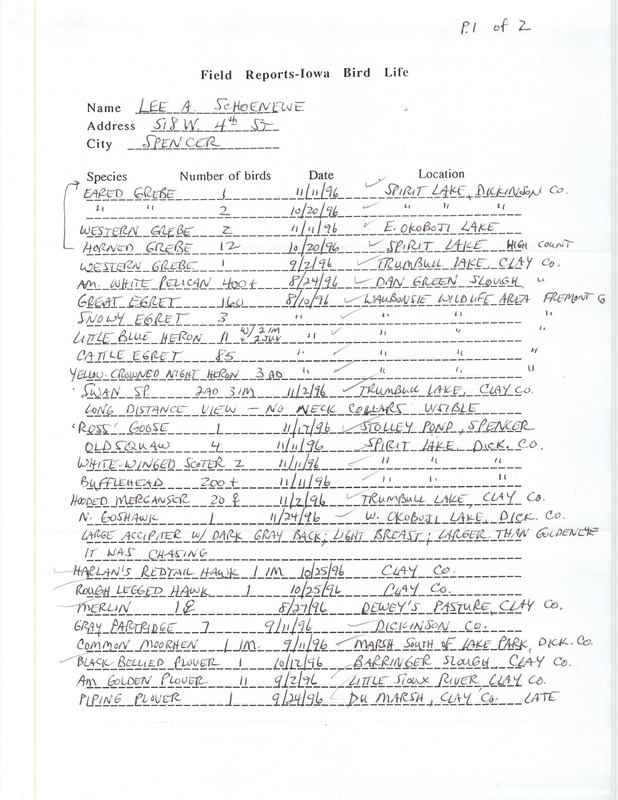 P.1 of 2
Field Reports-Iowa Bird Life
Name LEE A. SCHOENEWE
Address 518 W. 4th ST
City SPENCER
Species Number of birds Date Location
EARED GREBE 1 11/11/96 SPIRIT LAKE, DICKINSON CO.
" " 2 10/20/96 " " "
WESTERN GREBE 2 11/11/96 E. OKOBOJI LAKE
HORNED GREBE 12 10/20/96 SPIRIT LAKE HIGH COUNT
WESTERN GREBE 1 9/2/96 TRUMBULL LAKE, CLAY CO.
AM. WHITE PELICAN 400+ 8/24/96 DAN GREEN SLOUGH "
GREAT EGRET 160 8/10/96 WAUBONSIE WILDLIFE AREA FREMONT
SNOWY EGRET 3 " " " "
LITTLE BLUE HERON 11 W/ 2 IM & 2 JUV " " " "
CATTLE EGRET 85 " " " "
YELLOW-CROWNED NIGHT HERON 3 AD " " " "
SWAN SP. 2AD 3IM 11/2/96 TRUMBULL LAKE, CLAY CO.
LONG DISTANCE VIEW - NO NECK COLLARS VISIBLE
'ROSS' GOOSE 1 11/17/96 STOLLEY POND, SPENCER
OLDSQUAW 4 11/11/96 SPIRIT LAKE, DICK. CO.
WHITE-WINGED SCOTER 2 11/11/96 " " "
BUFFLEHEAD 200+ 11/11/96 " " "
HOODED MERGANSER 20 ♀ 11/2/96 TRUMBULL LAKE, CLAY CO.
N. GOSHAWK 1 11/24/96 W. OKOBOJI LAKE, DICK. CO.
LARGE ACCIPITER W/ DARK GRAY BACK; LIGHT BREAST; LARGER THAN GOLDENEYE
IT WAS CHASING
HARLAN'S REDTAIL HAWK 1 IM 10/25/96 CLAY CO.
ROUGH LEGGED HAWK 1 10/25/96 CLAY CO.
MERLIN 1♀ 8/27/96 DEWEY'S PASTURE, CLAY CO.
GRAY PARTRIDGE 7 9/11/96 DICKINSON CO.
COMMON MOORHEN 1 IM. 9/11/96 MARSH SOUTH OF LAKE PARK, DICK. CO.
BLACK-BELLIED PLOVER 1 10/12/96 BARRINGER SLOUGH CLAY CO.
AM GOLDEN PLOVER 11 9/2/96 LITTLE SIOUX RIVER, CLAY CO.
PIPING PLOVER 1 9/24/96 DU MARSH, CLAY CO. LATE